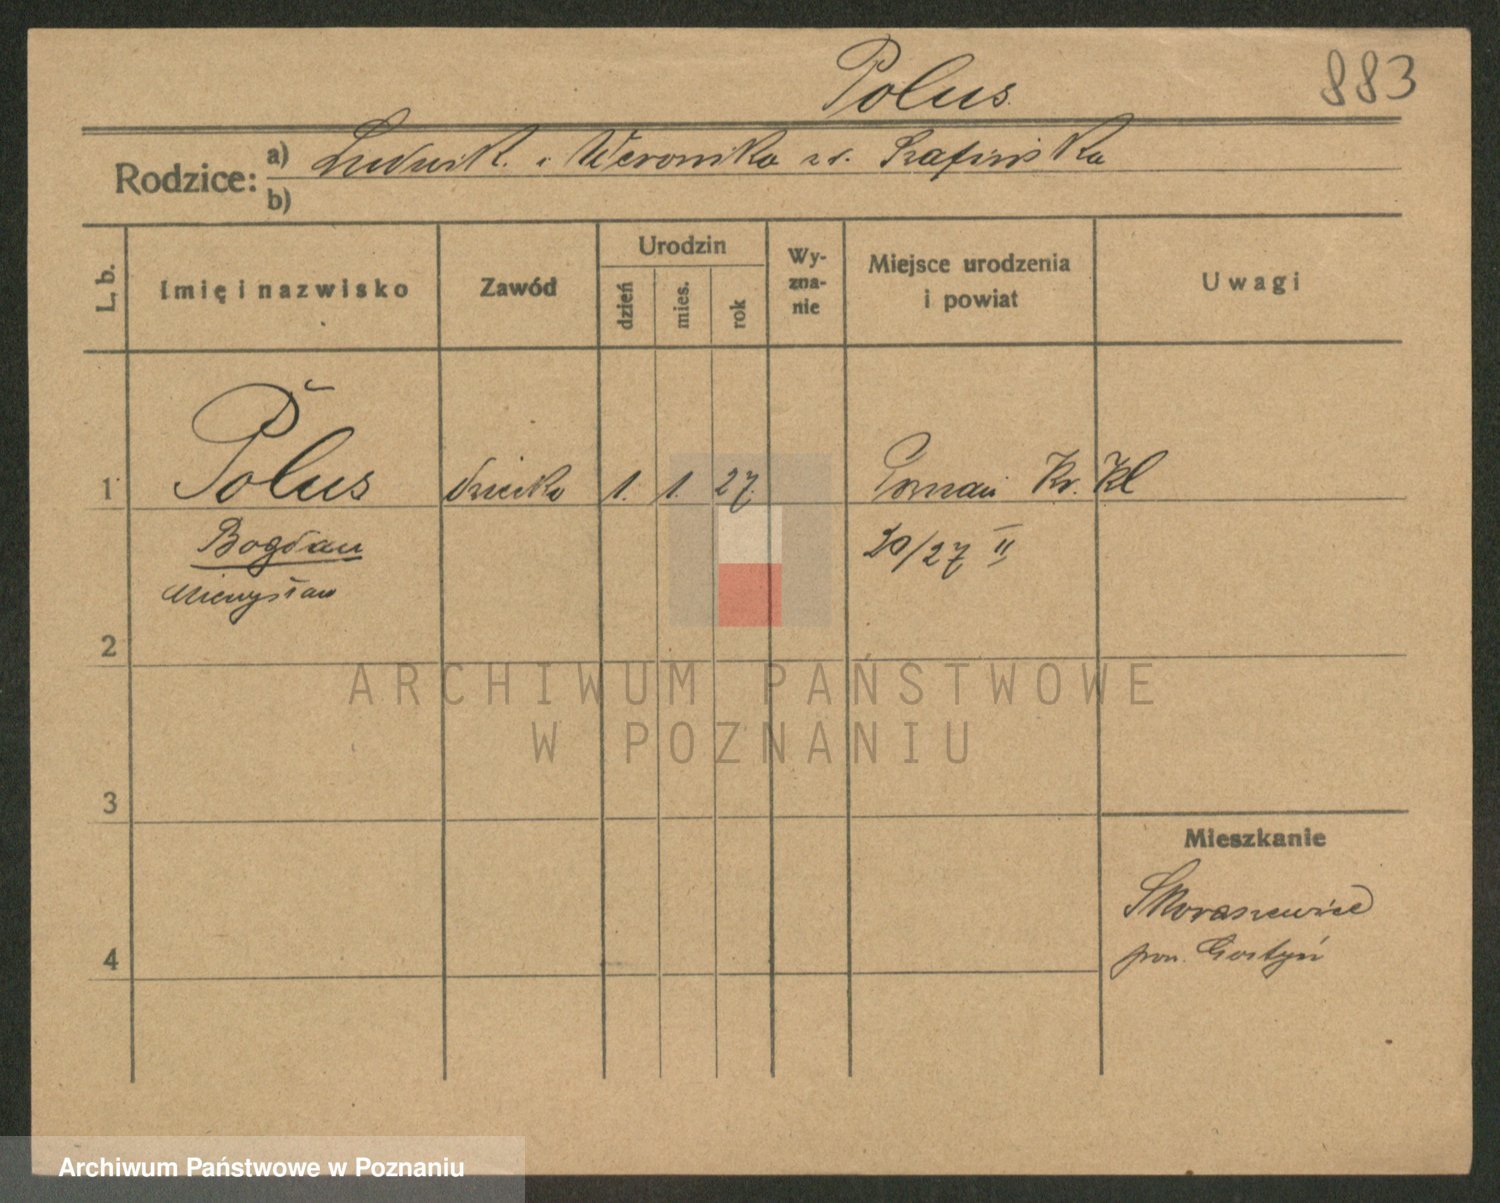 Polus 883
Rodzice: a) Ludwik i Weronika zd. Szafińska
b)
L. b. Imię i nazwisko Zawód Urodzin dzień mies. rok Wy-zna-nie Miejsce urodzenia i powiat Uwagi
1 Polus dziecko 1. 1. 27. Poznań Kr. Kl
Bogdan 20/27 II
Mieczysław
2
3
Mieszkanie
Skoraszewice
pow. Gostyń
4
ARCHIWUM PAŃSTWOWE
W POZNANIU
Archiwum Państwowe w Poznaniu